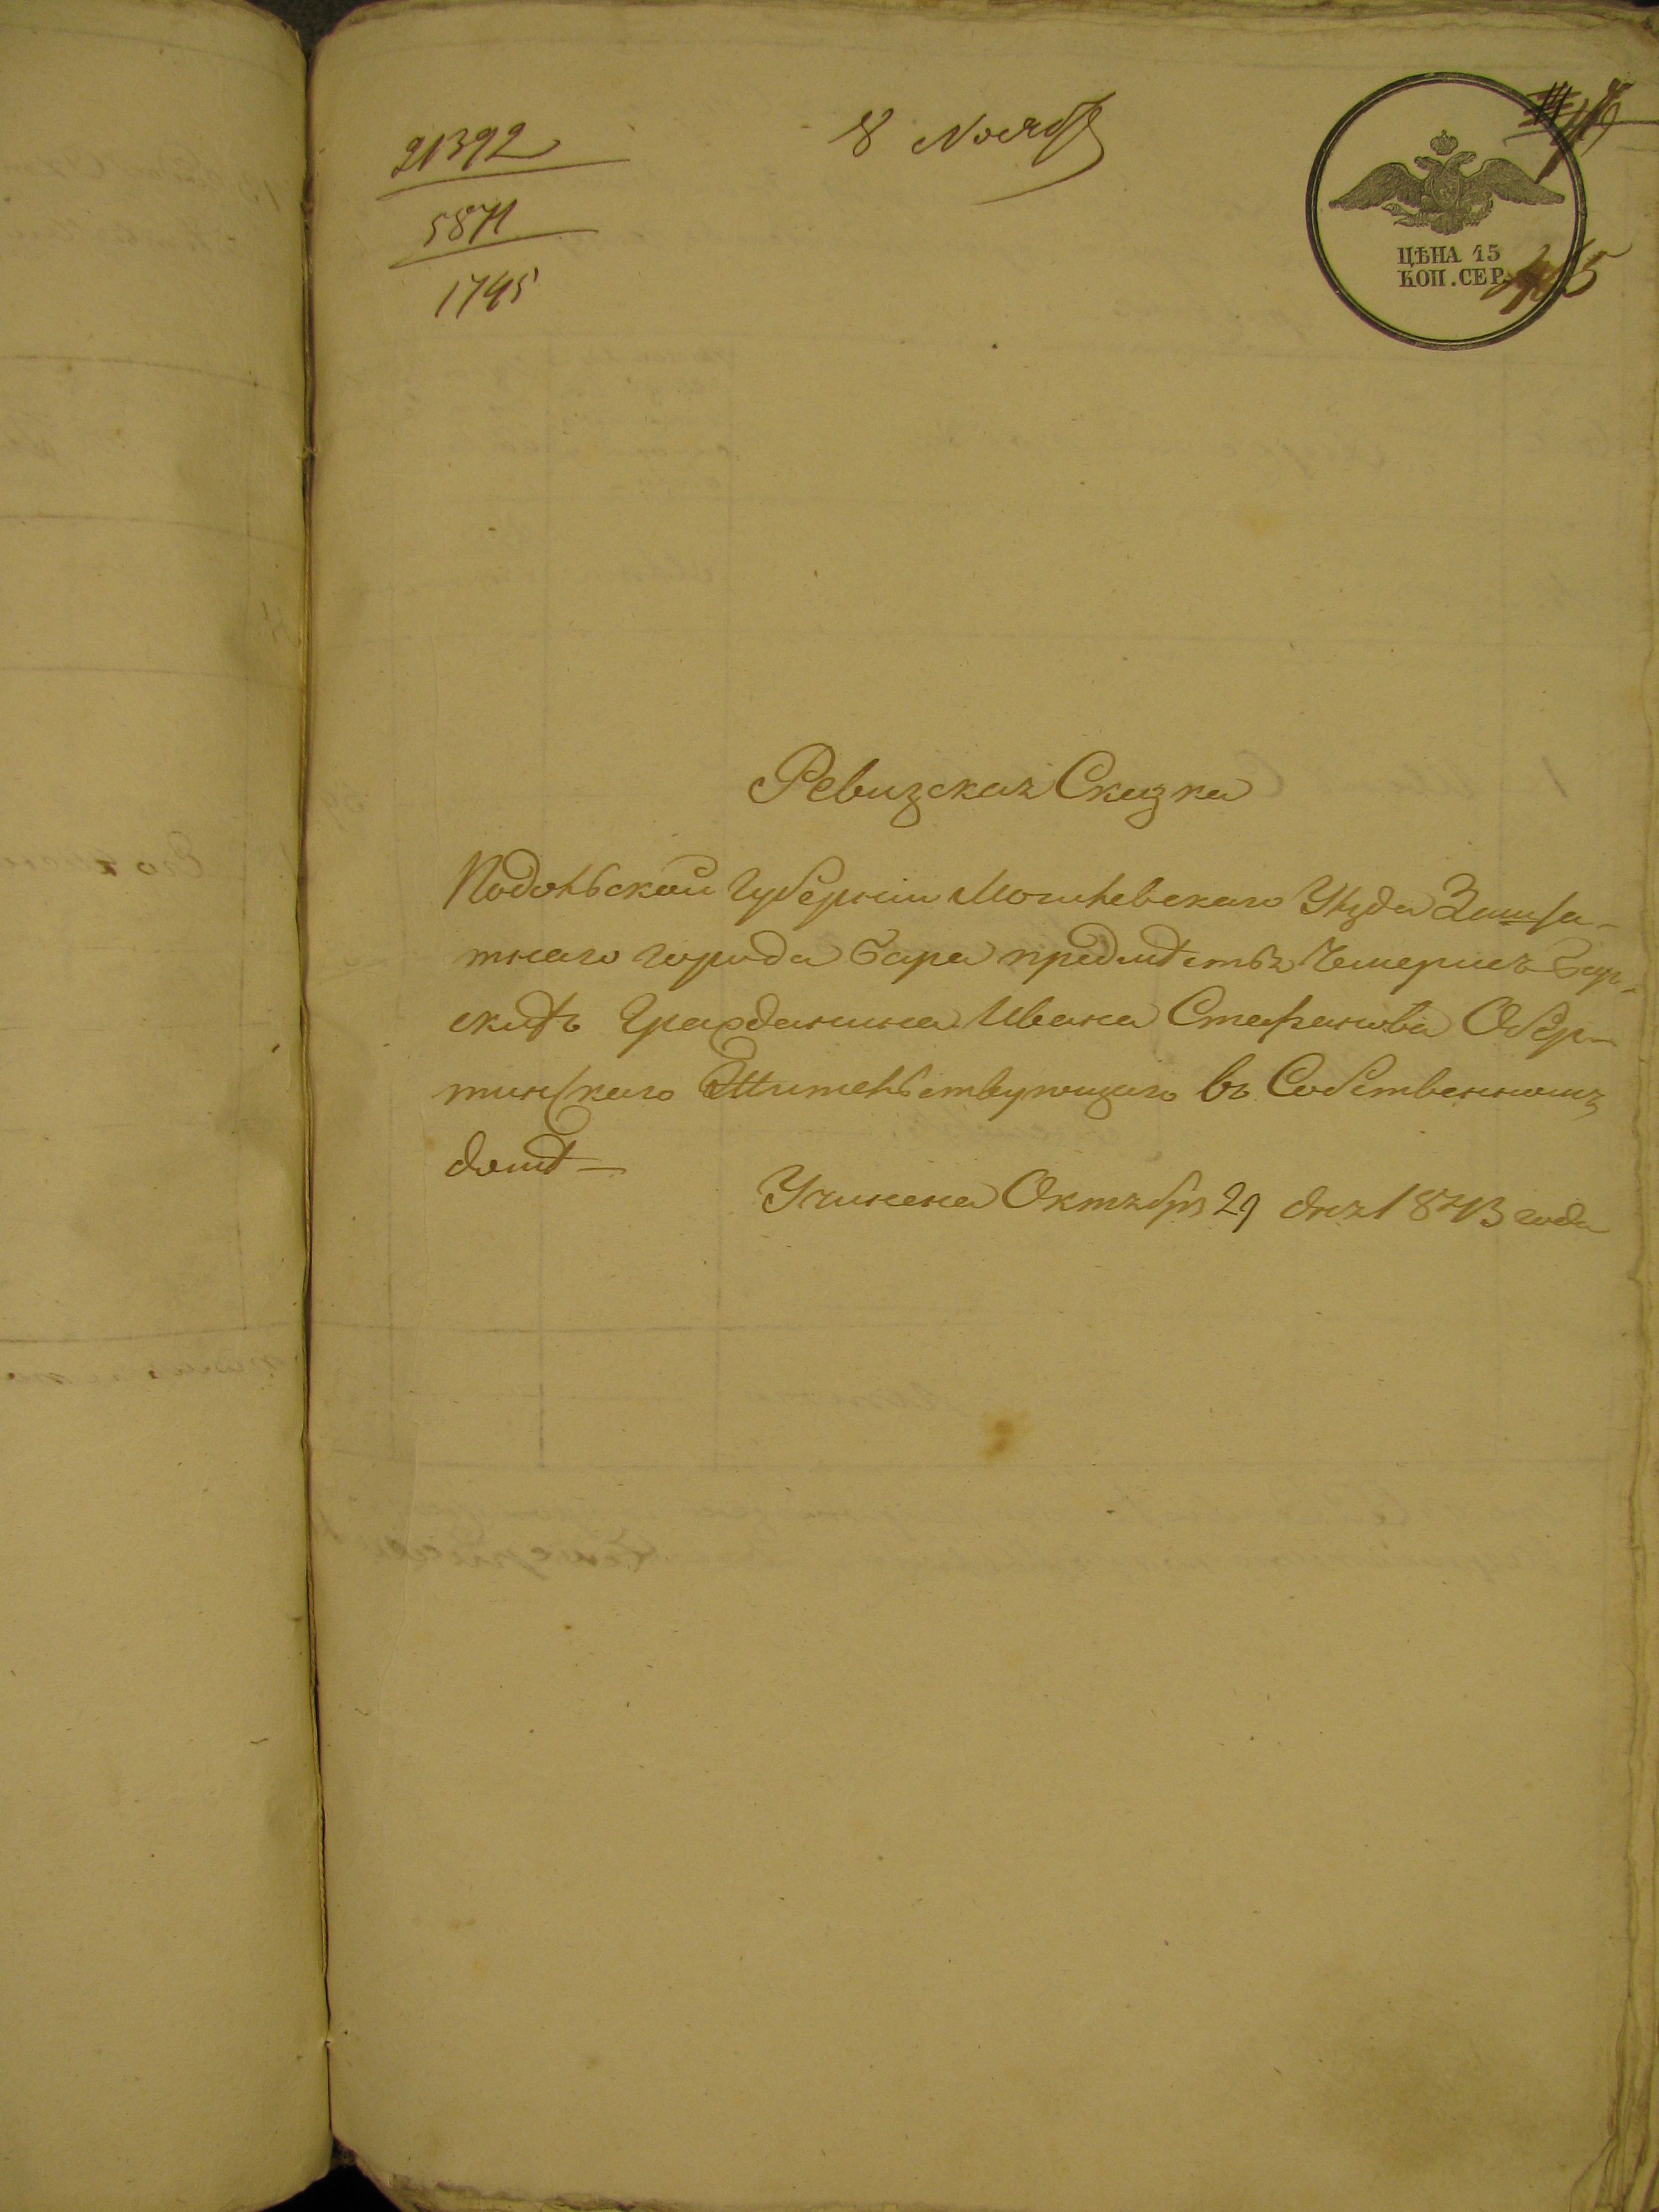 21392
5871
1745
8 Ноября
ЦѢНА 15
КОП. СЕР.
Ревизская Сказка
Подольской Губернии Могилевского Уѣзда Зашта-
тнаго города Бара предмѣстья Чемерис Бар-
скихъ Гражданина Ивана Стефанова Обер-
тинскаго Жительствующаго въ Собственномъ
домѣ —
Учинена Октября 29 дня 1843 года